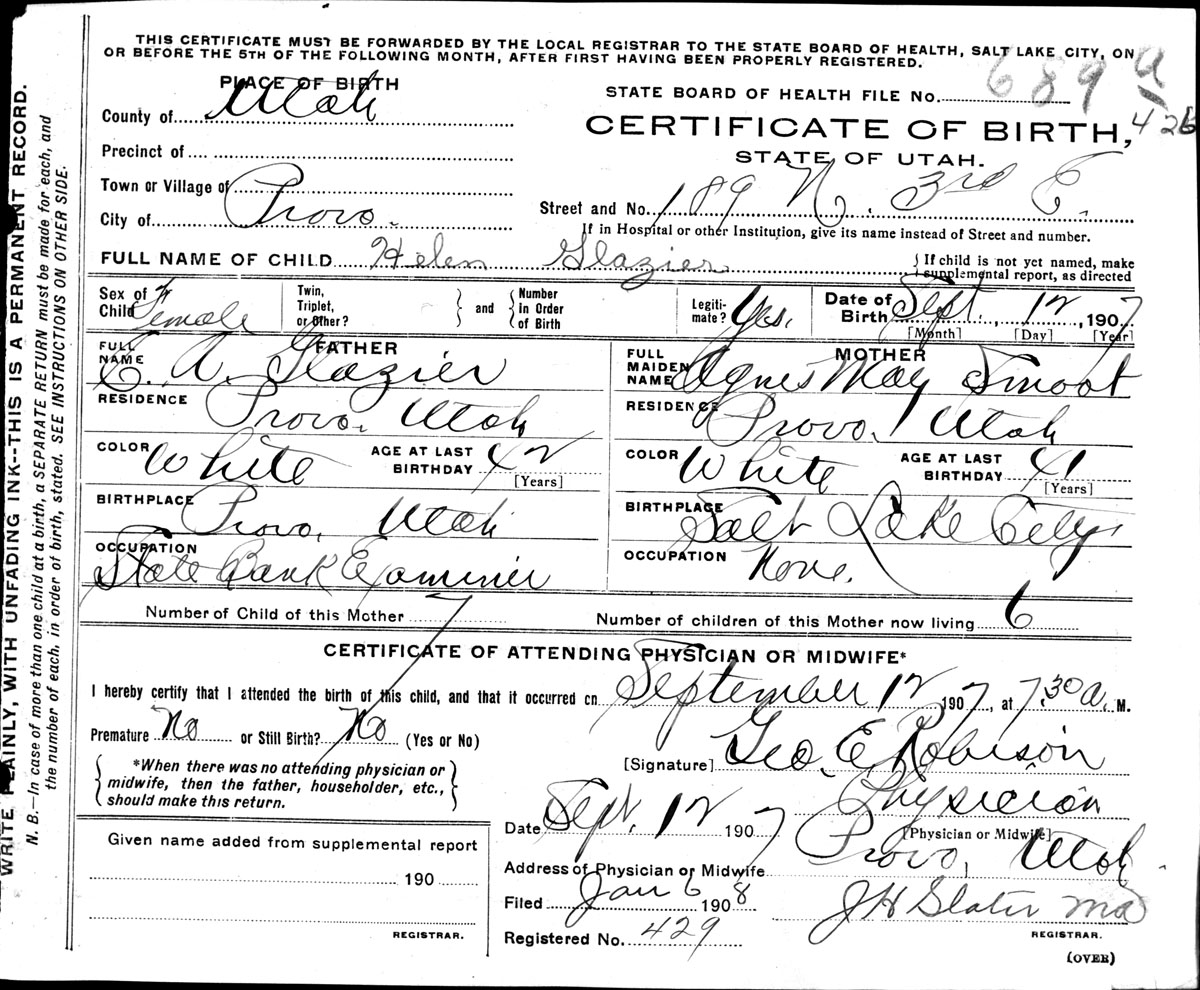 THIS CERTIFICATE MUST BE FORWARDED BY THE LOCAL REGISTRAR TO THE STATE BOARD OF HEALTH, SALT LAKE CITY, ON
OR BEFORE THE 5TH OF THE FOLLOWING MONTH, AFTER FIRST HAVING BEEN PROPERLY REGISTERED.
PLACE OF BIRTH
County of Utah
Precinct of
Town or Village of
City of Provo.
STATE BOARD OF HEALTH FILE No. 689 a
426
CERTIFICATE OF BIRTH,
STATE OF UTAH.
Street and No. 189 N. 3rd E.
If in Hospital or other Institution, give its name instead of Street and number.
FULL NAME OF CHILD Helen Glazier
If child is not yet named, make
supplemental report, as directed
Sex of Child Female
Twin, Triplet, or Other? and Number in Order of Birth
Legitimate? Yes.
Date of Birth Sept. 12, 1907
[Month] [Day] [Year]
FATHER
FULL NAME C. A. Glazier
RESIDENCE Provo, Utah
COLOR White AGE AT LAST BIRTHDAY 42
[Years]
BIRTHPLACE Provo, Utah
OCCUPATION State Bank Examiner
MOTHER
FULL MAIDEN NAME Agnes May Smoot
RESIDENCE Provo, Utah
COLOR White AGE AT LAST BIRTHDAY 41
[Years]
BIRTHPLACE Salt Lake City
OCCUPATION None.
Number of Child of this Mother 7
Number of children of this Mother now living 6
CERTIFICATE OF ATTENDING PHYSICIAN OR MIDWIFE*
I hereby certify that I attended the birth of this child, and that it occurred on September 12 1907, at 7:30 a. M.
Premature No or Still Birth? No (Yes or No)
*When there was no attending physician or
midwife, then the father, householder, etc.,
should make this return.
[Signature] Geo. E. Robison
Physician
[Physician or Midwife]
Date Sept. 12 1907
Address of Physician or Midwife Provo, Utah
Given name added from supplemental report
190
REGISTRAR.
Filed Jan 6 1908
J H Slater MD
REGISTRAR.
Registered No. 429
(OVER)
WRITE PLAINLY, WITH UNFADING INK--THIS IS A PERMANENT RECORD.
N. B.—In case of more than one child at a birth, a SEPARATE RETURN must be made for each, and
the number of each, in order of birth, stated. SEE INSTRUCTIONS ON OTHER SIDE.